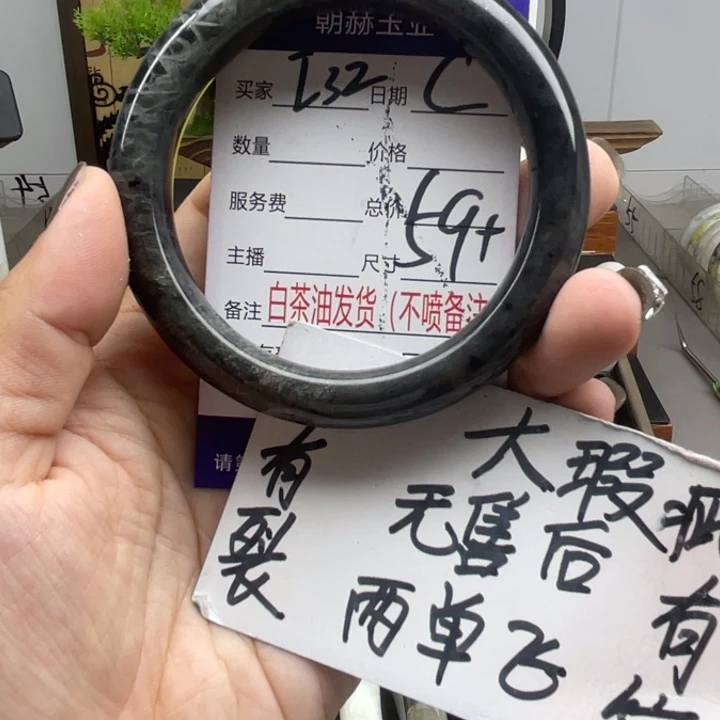 朝赫玉业
买家 I32 日期 C
数量 价格
服务费 总价
59+
主播 尺寸
备注 白茶油发货（不喷备注
请
有裂
大瑕疵
无售后
两单飞
有